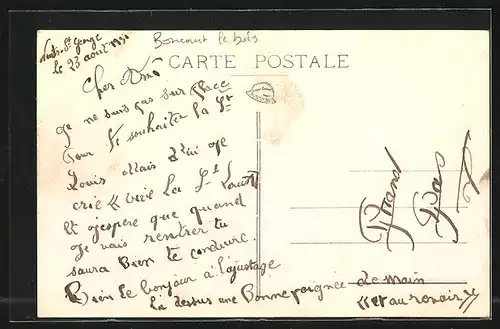 le 23 août 1931
Boncourt le bois
CARTE POSTALE
Cher
Je ne suis pas sur place
Pour Te souhaiter la St
Louis Mais d'ici je
crie « vive la St Louis »
Et j'espère que quand
Je vais rentrer tu
saura Bien te conduire.
Bien le bonjour a l'ajustage
Là dessus une Bonne poignée de main
« et au revoir »
Grand
Bas